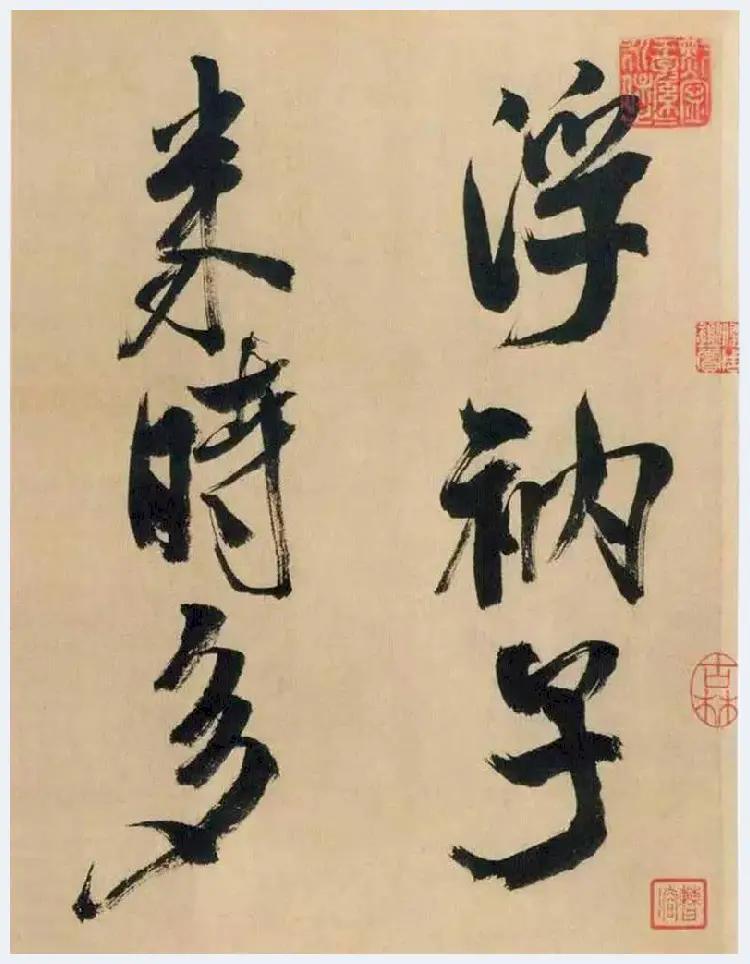 浮衲子
来時多
古林